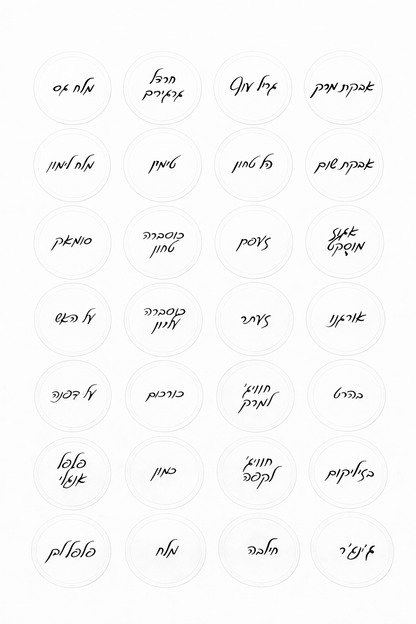 אבקת מרק
גריל עוף
חרדל
גרגירים
מלח גס
אבקת שום
הל טחון
טימין
מלח לימון
אגוז
מוסקט
כוסברה
טחון
סומאק
אורגנו
זעתר
כוסברה
על האש
בהרט
חוויג'
למרק
כורכום
על דפנה
בזיליקום
חוויג'
לקפה
כמון
פלפל
אנגלי
ג'ינג'ר
חילבה
מלח
פלפל לבן